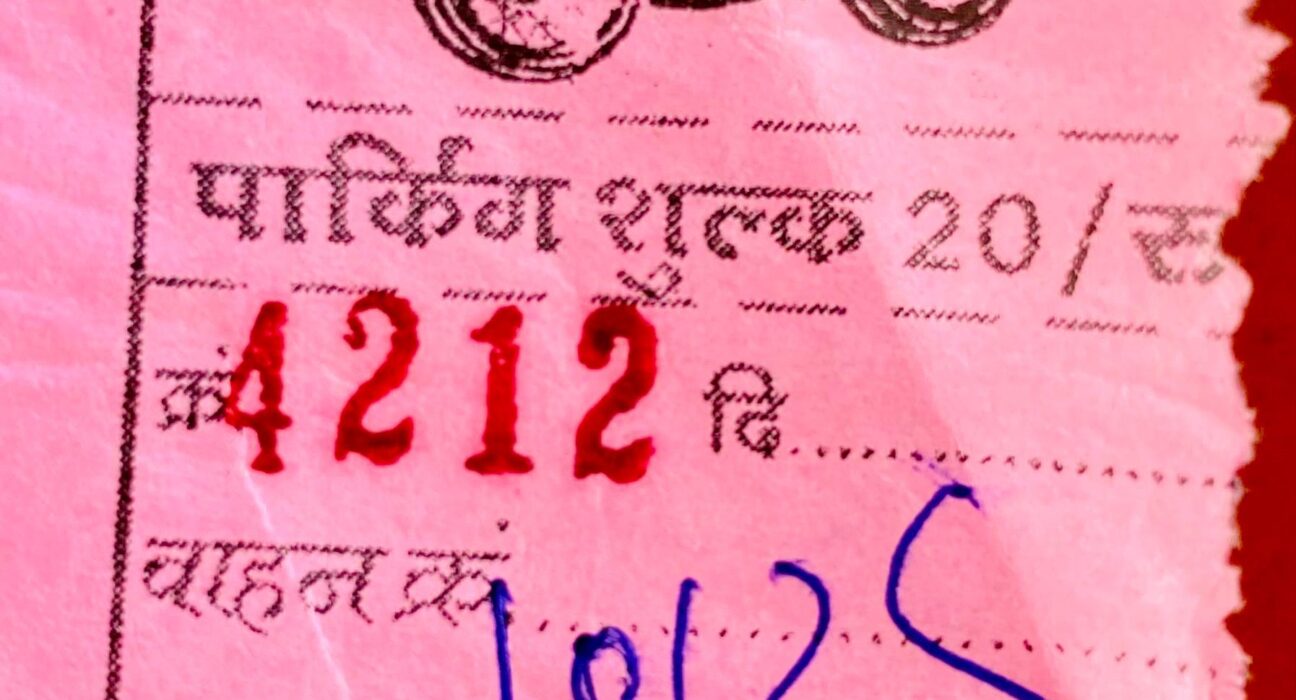 पार्किंग शुल्क 20/रु
क्रं 4212 दि..............
वाहन क्रं..............